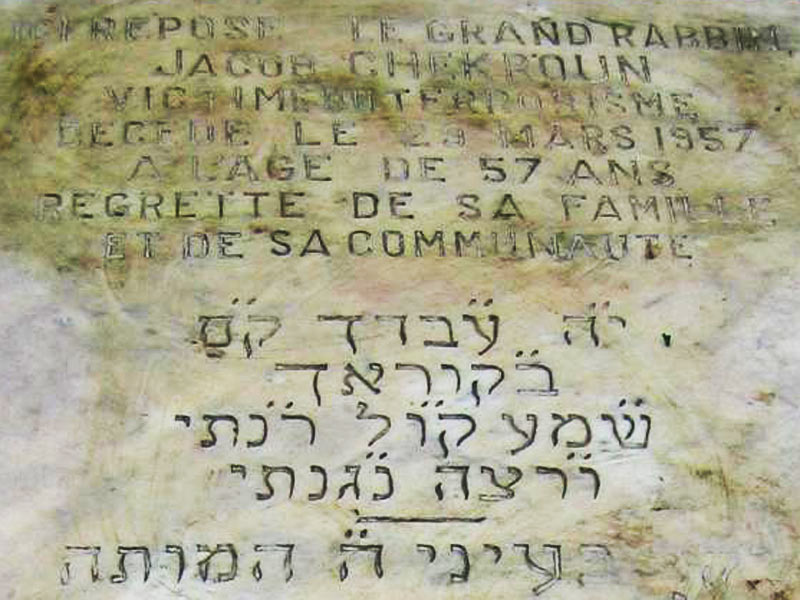 ICI REPOSE LE GRAND RABBIN
JACOB CHEKROUN
VICTIME DU TERRORISME
DECEDE LE 29 MARS 1957
A L'AGE DE 57 ANS
REGRETTE DE SA FAMILLE
ET DE SA COMMUNAUTE
י״ה עבדך קם
בקוראך
שמע קול רנתי
ורצה נגנתי
בעיני ה המותה